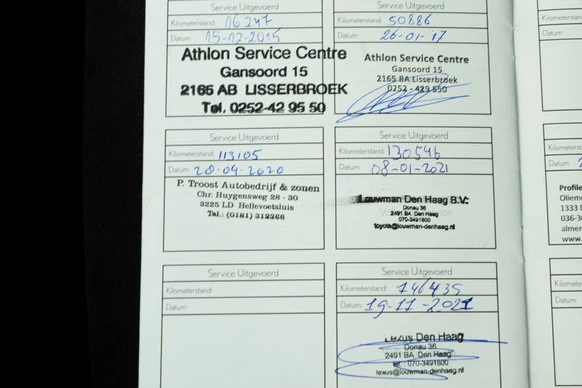 Service Uitgevoerd
Kilometerstand: 16247
Datum: 15-12-2015
Athlon Service Centre
Gansoord 15
2165 AB LISSERBROEK
Tel. 0252-42 95 50
Service Uitgevoerd
Kilometerstand: 50886
Datum: 26-01-17
Athlon Service Centre
Gansoord 15
2165 BA Lisserbroek
0252 - 429 550
Service Uitgevoerd
Kilometerstand: 113105
Datum: 28-04-2020
P. Troost Autobedrijf & zonen
Chr. Huygensweg 28 - 30
3225 LD Hellevoetsluis
Tel.: (0181) 312366
Service Uitgevoerd
Kilometerstand: 130546
Datum: 08-01-2021
Louwman Den Haag B.V.
Donau 36
2491 BA Den Haag
070-3491800
toyota@louwman-denhaag.nl
Service Uitgevoerd
Kilometerstand:
Datum:
Service Uitgevoerd
Kilometerstand: 141435
Datum: 19-11-2021
Lexus Den Haag
Donau 36
2491 BA Den Haag
tel: 070-3491800
lexus@louwman-denhaag.nl
Kilom
Datum:
Kilom
Datum:
Profile
Oliem
1333
036-
almer
www.
Kilom
Datum: